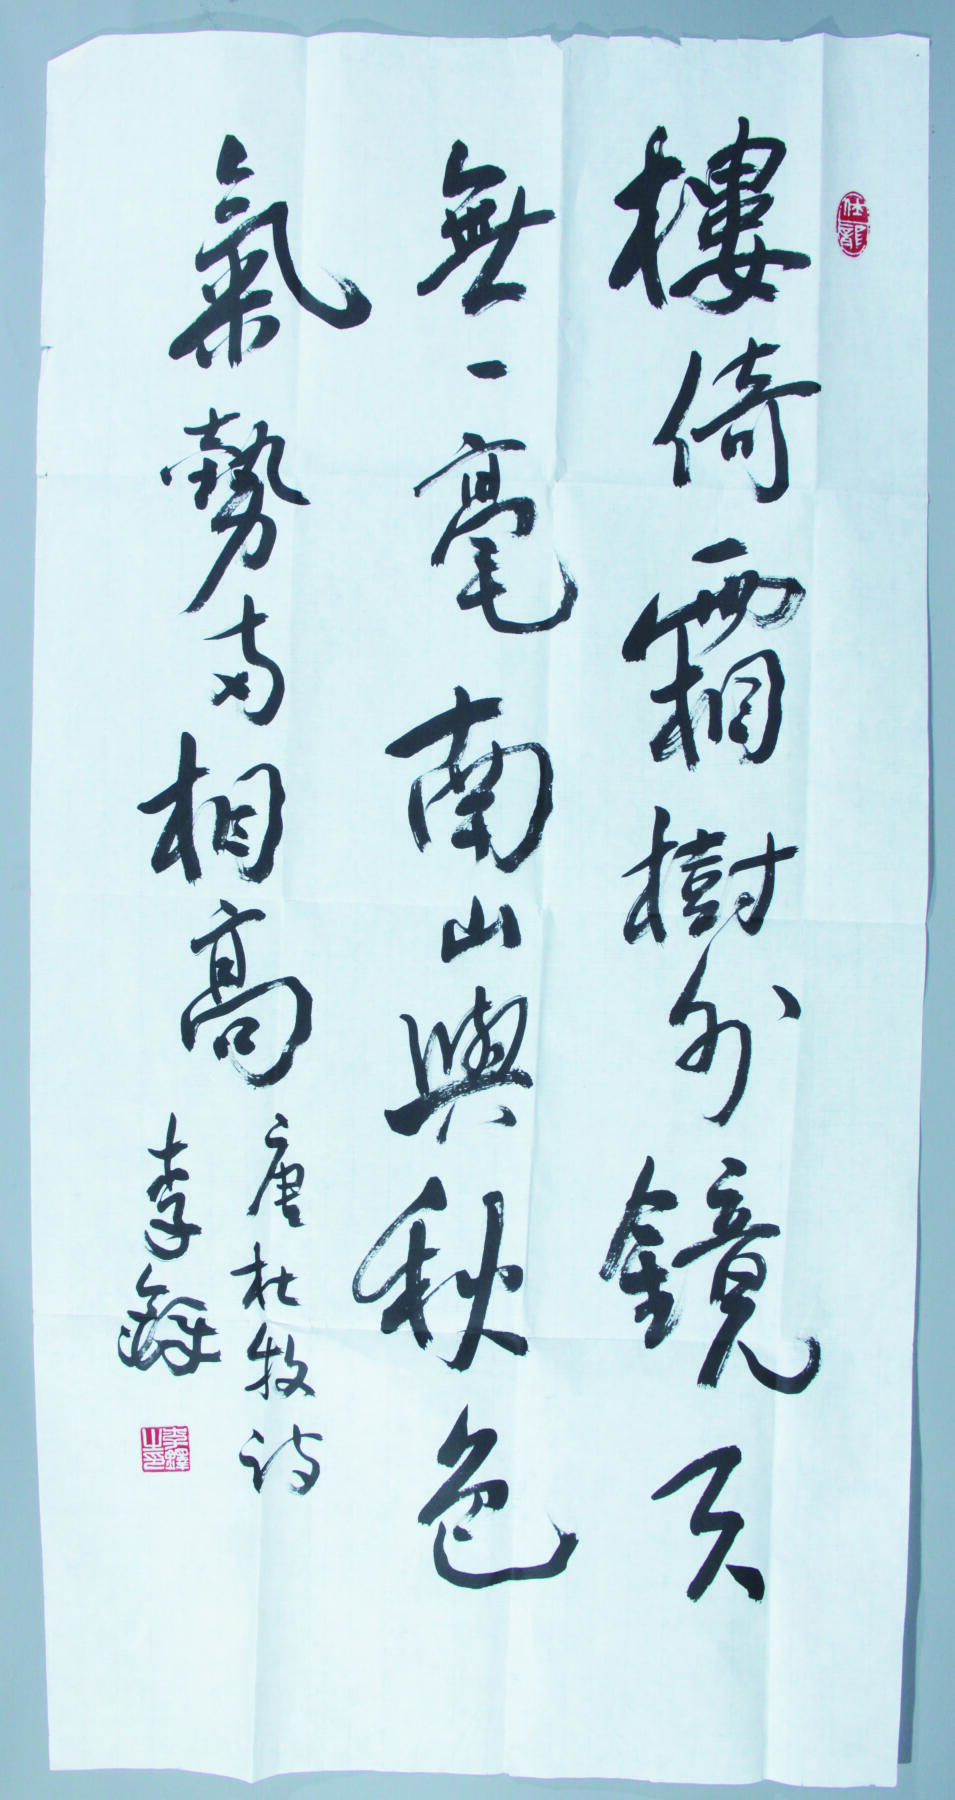 樓倚霜樹外鏡天
無一毫南山與秋色
氣勢兩相高
唐杜牧詩
李鐸
李鐸之印